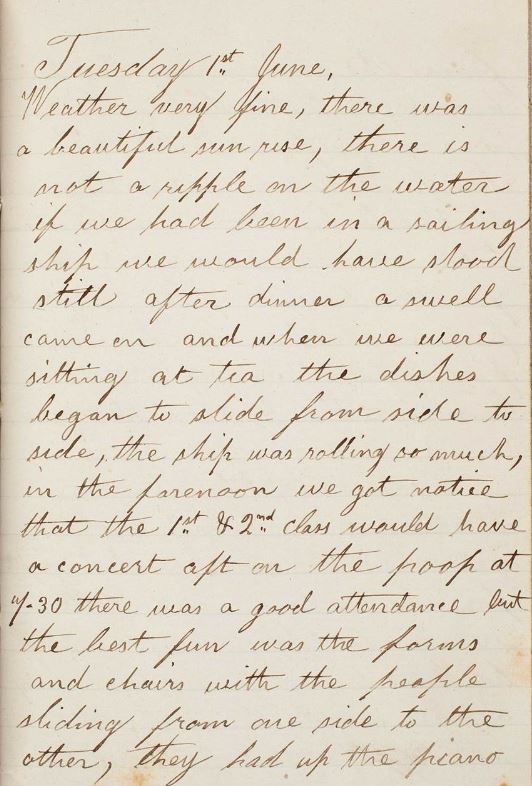 Tuesday 1st June,
Weather very fine, there was
a beautiful sun rise, there is
not a ripple on the water
if we had been in a sailing
ship we would have stood
still after dinner a swell
came on and when we were
sitting at tea the dishes
began to slide from side to
side, the ship was rolling so much,
in the forenoon we got notice
that the 1st & 2nd class would have
a concert aft on the poop at
7-30 there was a good attendance but
the best fun was the forms
and chairs with the people
sliding from one side to the
other, they had up the piano